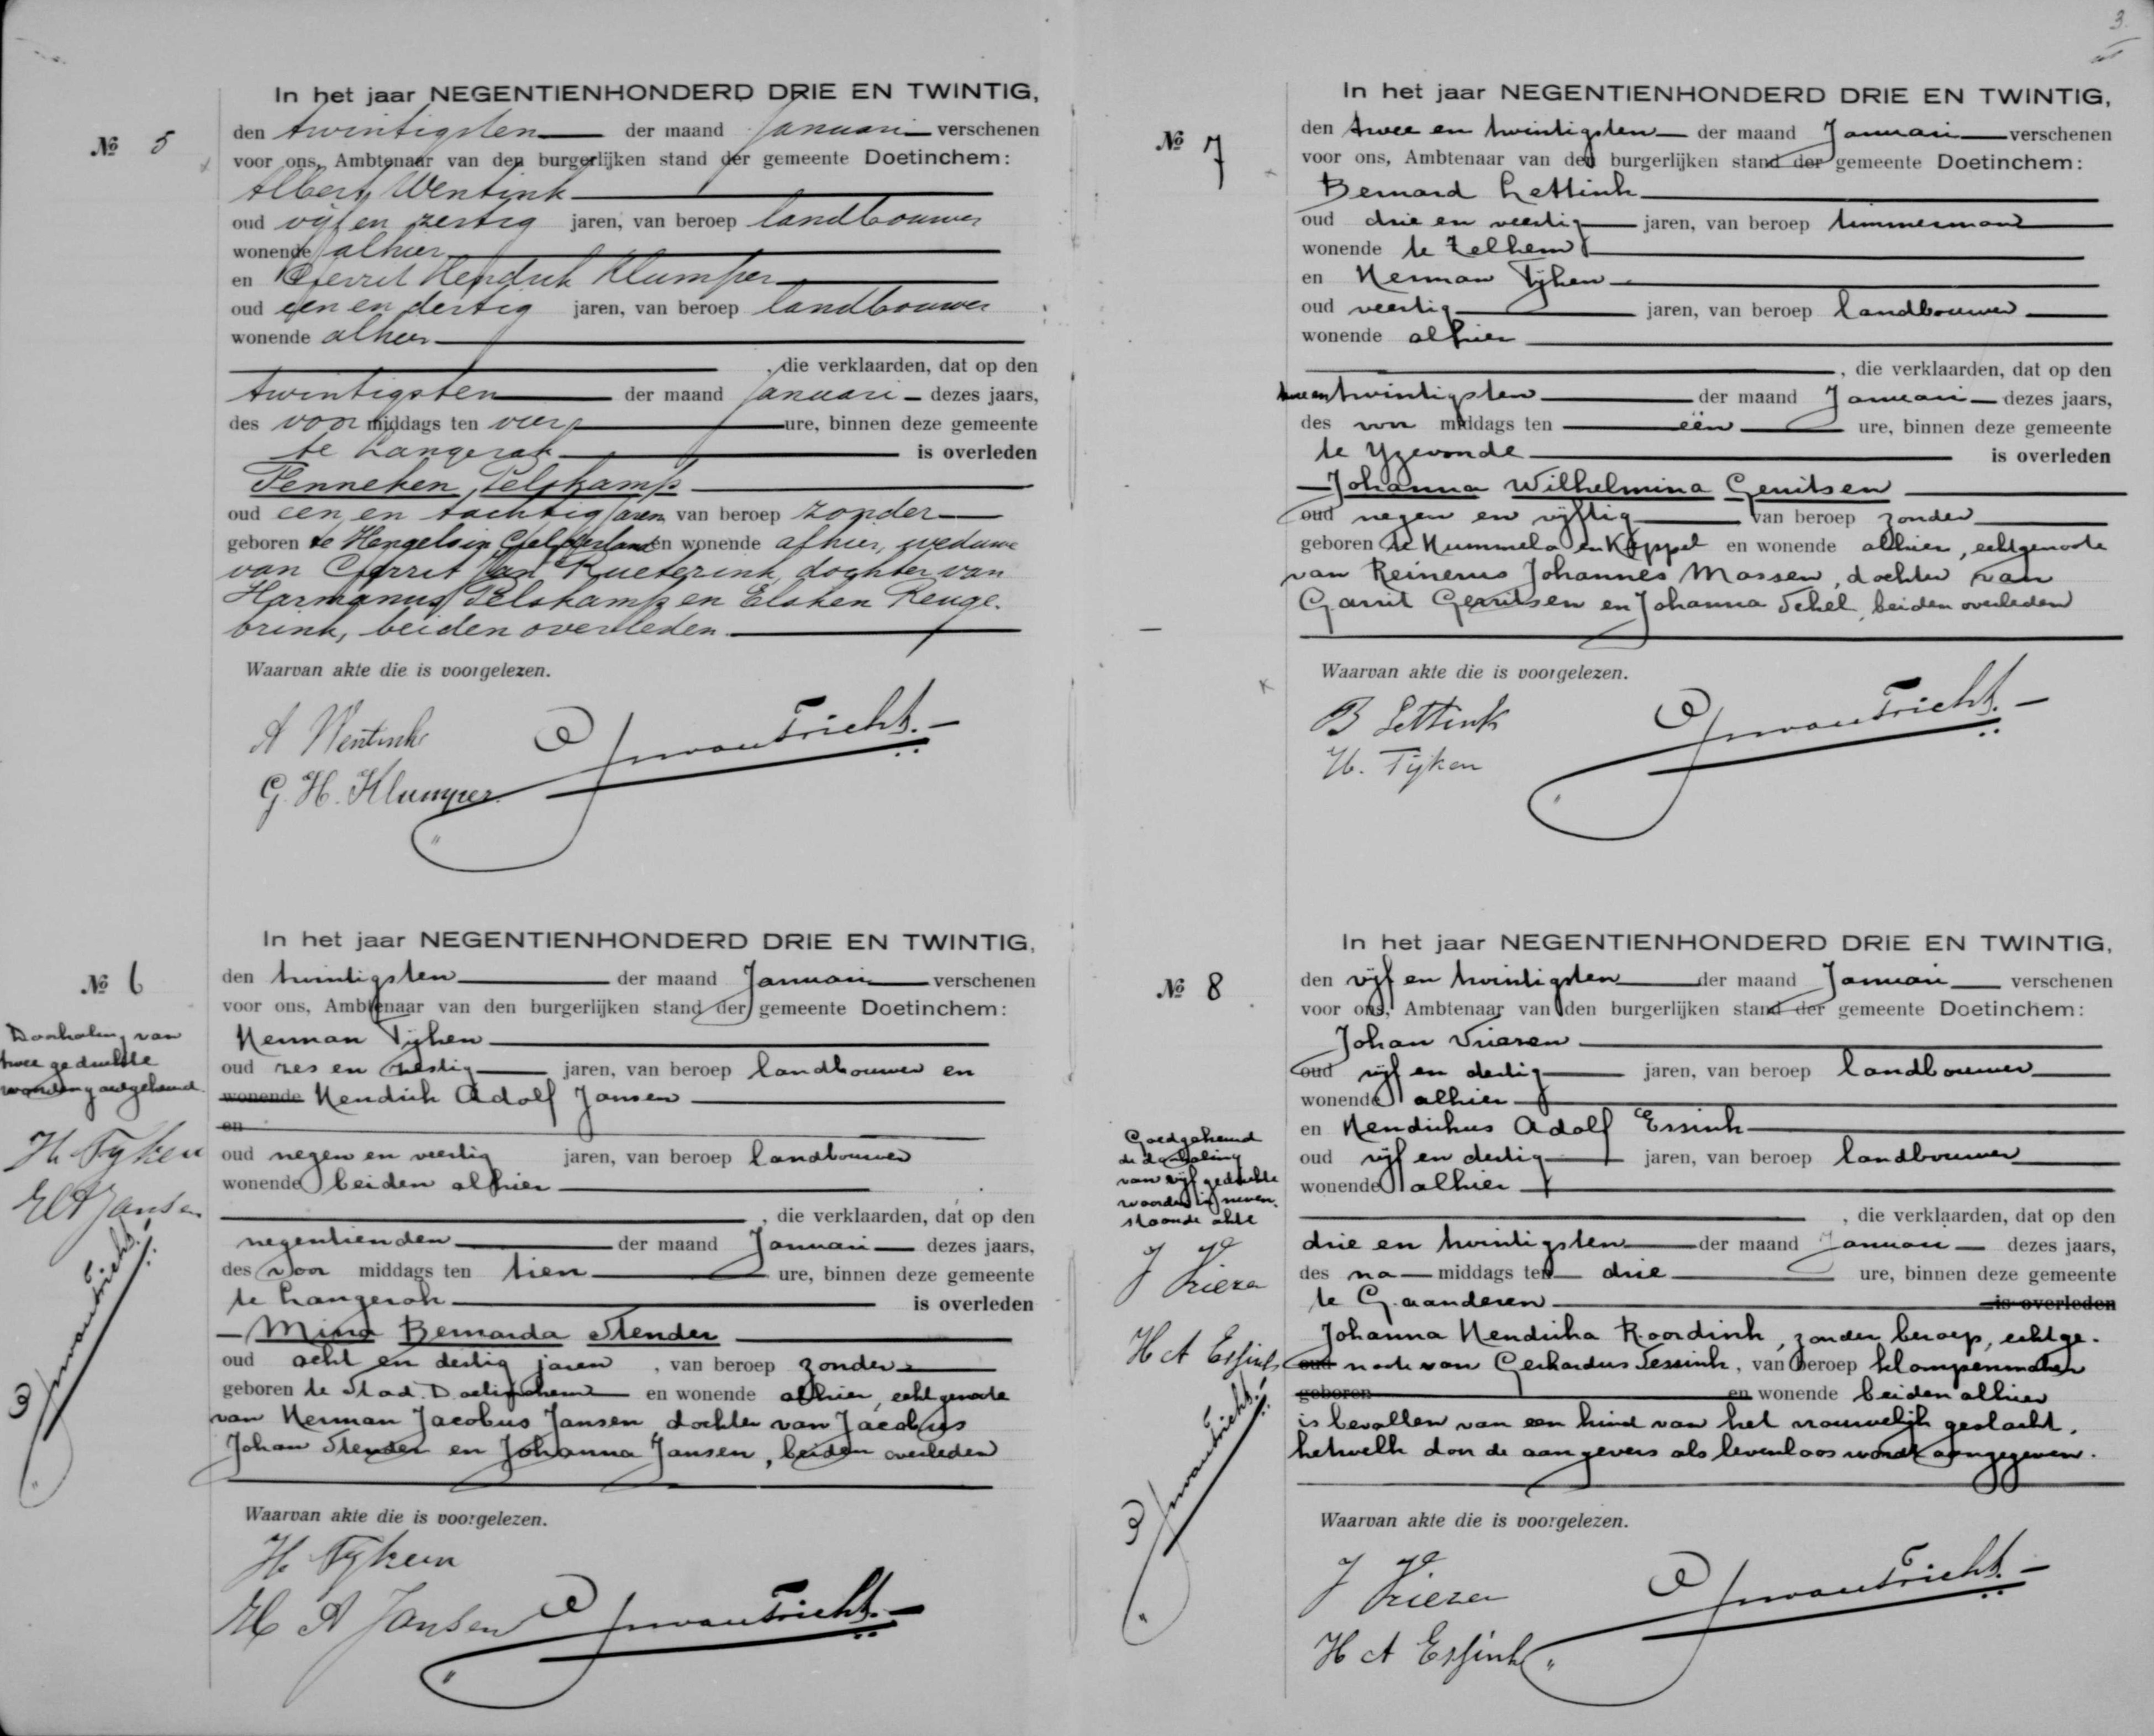 3
In het jaar NEGENTIENHONDERD DRIE EN TWINTIG,
No 5
den twintigsten der maand Januari verschenen
voor ons, Ambtenaar van den burgerlijken stand der gemeente Doetinchem:
Albert Wentink
oud vijf en zestig jaren, van beroep landbouwer
wonende alhier
en Gerrit Hendrik Klumper
oud een en dertig jaren, van beroep landbouwer
wonende alhier
, die verklaarden, dat op den
twintigsten der maand Januari dezes jaars,
des voor middags ten vier ure, binnen deze gemeente
te Langerak is overleden
Fenneken Pelskamp
oud een en tachtig jaren van beroep zonder
geboren te Hengelo in Gelderland en wonende alhier, weduwe
van Gerrit Jan Rueterink, dochter van
Harmanus Pelskamp en Elsken Reuge-
brink, beiden overleden.
Waarvan akte die is voorgelezen.
A Wentink
G. H. Klumper
JvanTricht.
In het jaar NEGENTIENHONDERD DRIE EN TWINTIG,
No 6
den twintigsten der maand Januari verschenen
voor ons, Ambtenaar van den burgerlijken stand der gemeente Doetinchem:
Herman Tijken
oud zes en zestig jaren, van beroep landbouwer en
wonende Hendrik Adolf Jansen
en
oud negen en veertig jaren, van beroep landbouwer
wonende beiden alhier
, die verklaarden, dat op den
negentienden der maand Januari dezes jaars,
des voor middags ten tien ure, binnen deze gemeente
te Langerak is overleden
Mina Bernarda Stender
oud acht en dertig jaren, van beroep zonder
geboren te Stad-Doetinchem en wonende alhier, echtgenoote
van Herman Jacobus Jansen, dochter van Jacobus
Johan Stender en Johanna Jansen, beiden overleden
Waarvan akte die is voorgelezen.
H Tyken
H A Jansen
JvanTricht.
Doorhaling van
twee gedrukte
woorden goedgekeurd
H Tyken
H A Jansen
JvanTricht.
In het jaar NEGENTIENHONDERD DRIE EN TWINTIG,
No 7
den twee en twintigsten der maand Januari verschenen
voor ons, Ambtenaar van den burgerlijken stand der gemeente Doetinchem:
Bernard Lettink
oud drie en veertig jaren, van beroep timmerman
wonende te Zelhem
en Herman Tijken
oud veertig jaren, van beroep landbouwer
wonende alhier
, die verklaarden, dat op den
twee en twintigsten der maand Januari dezes jaars,
des voor middags ten één ure, binnen deze gemeente
te Yzevoorde is overleden
Johanna Wilhelmina Gerritsen
oud negen en vijftig van beroep zonder
geboren te Hummelo en Keppel en wonende alhier, echtgenoote
van Reinerus Johannes Massen, dochter van
Garrit Gerritsen en Johanna Schel, beiden overleden
Waarvan akte die is voorgelezen.
B Lettink
H. Tijken
JvanTricht.
In het jaar NEGENTIENHONDERD DRIE EN TWINTIG,
No 8
den vijf en twintigsten der maand Januari verschenen
voor ons, Ambtenaar van den burgerlijken stand der gemeente Doetinchem:
Johan Vriezen
oud vijf en dertig jaren, van beroep landbouwer
wonende alhier
en Hendrikus Adolf Essink
oud vijf en dertig jaren, van beroep landbouwer
wonende alhier
, die verklaarden, dat op den
drie en twintigsten der maand Januari dezes jaars,
des na middags ten drie ure, binnen deze gemeente
te Gaanderen is overleden
Johanna Hendrika Roordink, zonder beroep, echtge-
oud noote van Gerhardus Sessink, van beroep klompenmaker
geboren en wonende beiden alhier
is bevallen van een kind van het vrouwelijk geslacht,
hetwelk door de aangevers als levenloos wordt aangegeven.
Waarvan akte die is voorgelezen.
J Vriezen
H A Essink
JvanTricht.
Goedgekeurd
de doorhaling
van vijf gedrukte
woorden in neven-
staande akte
J Vriezen
H A Essink
JvanTricht.